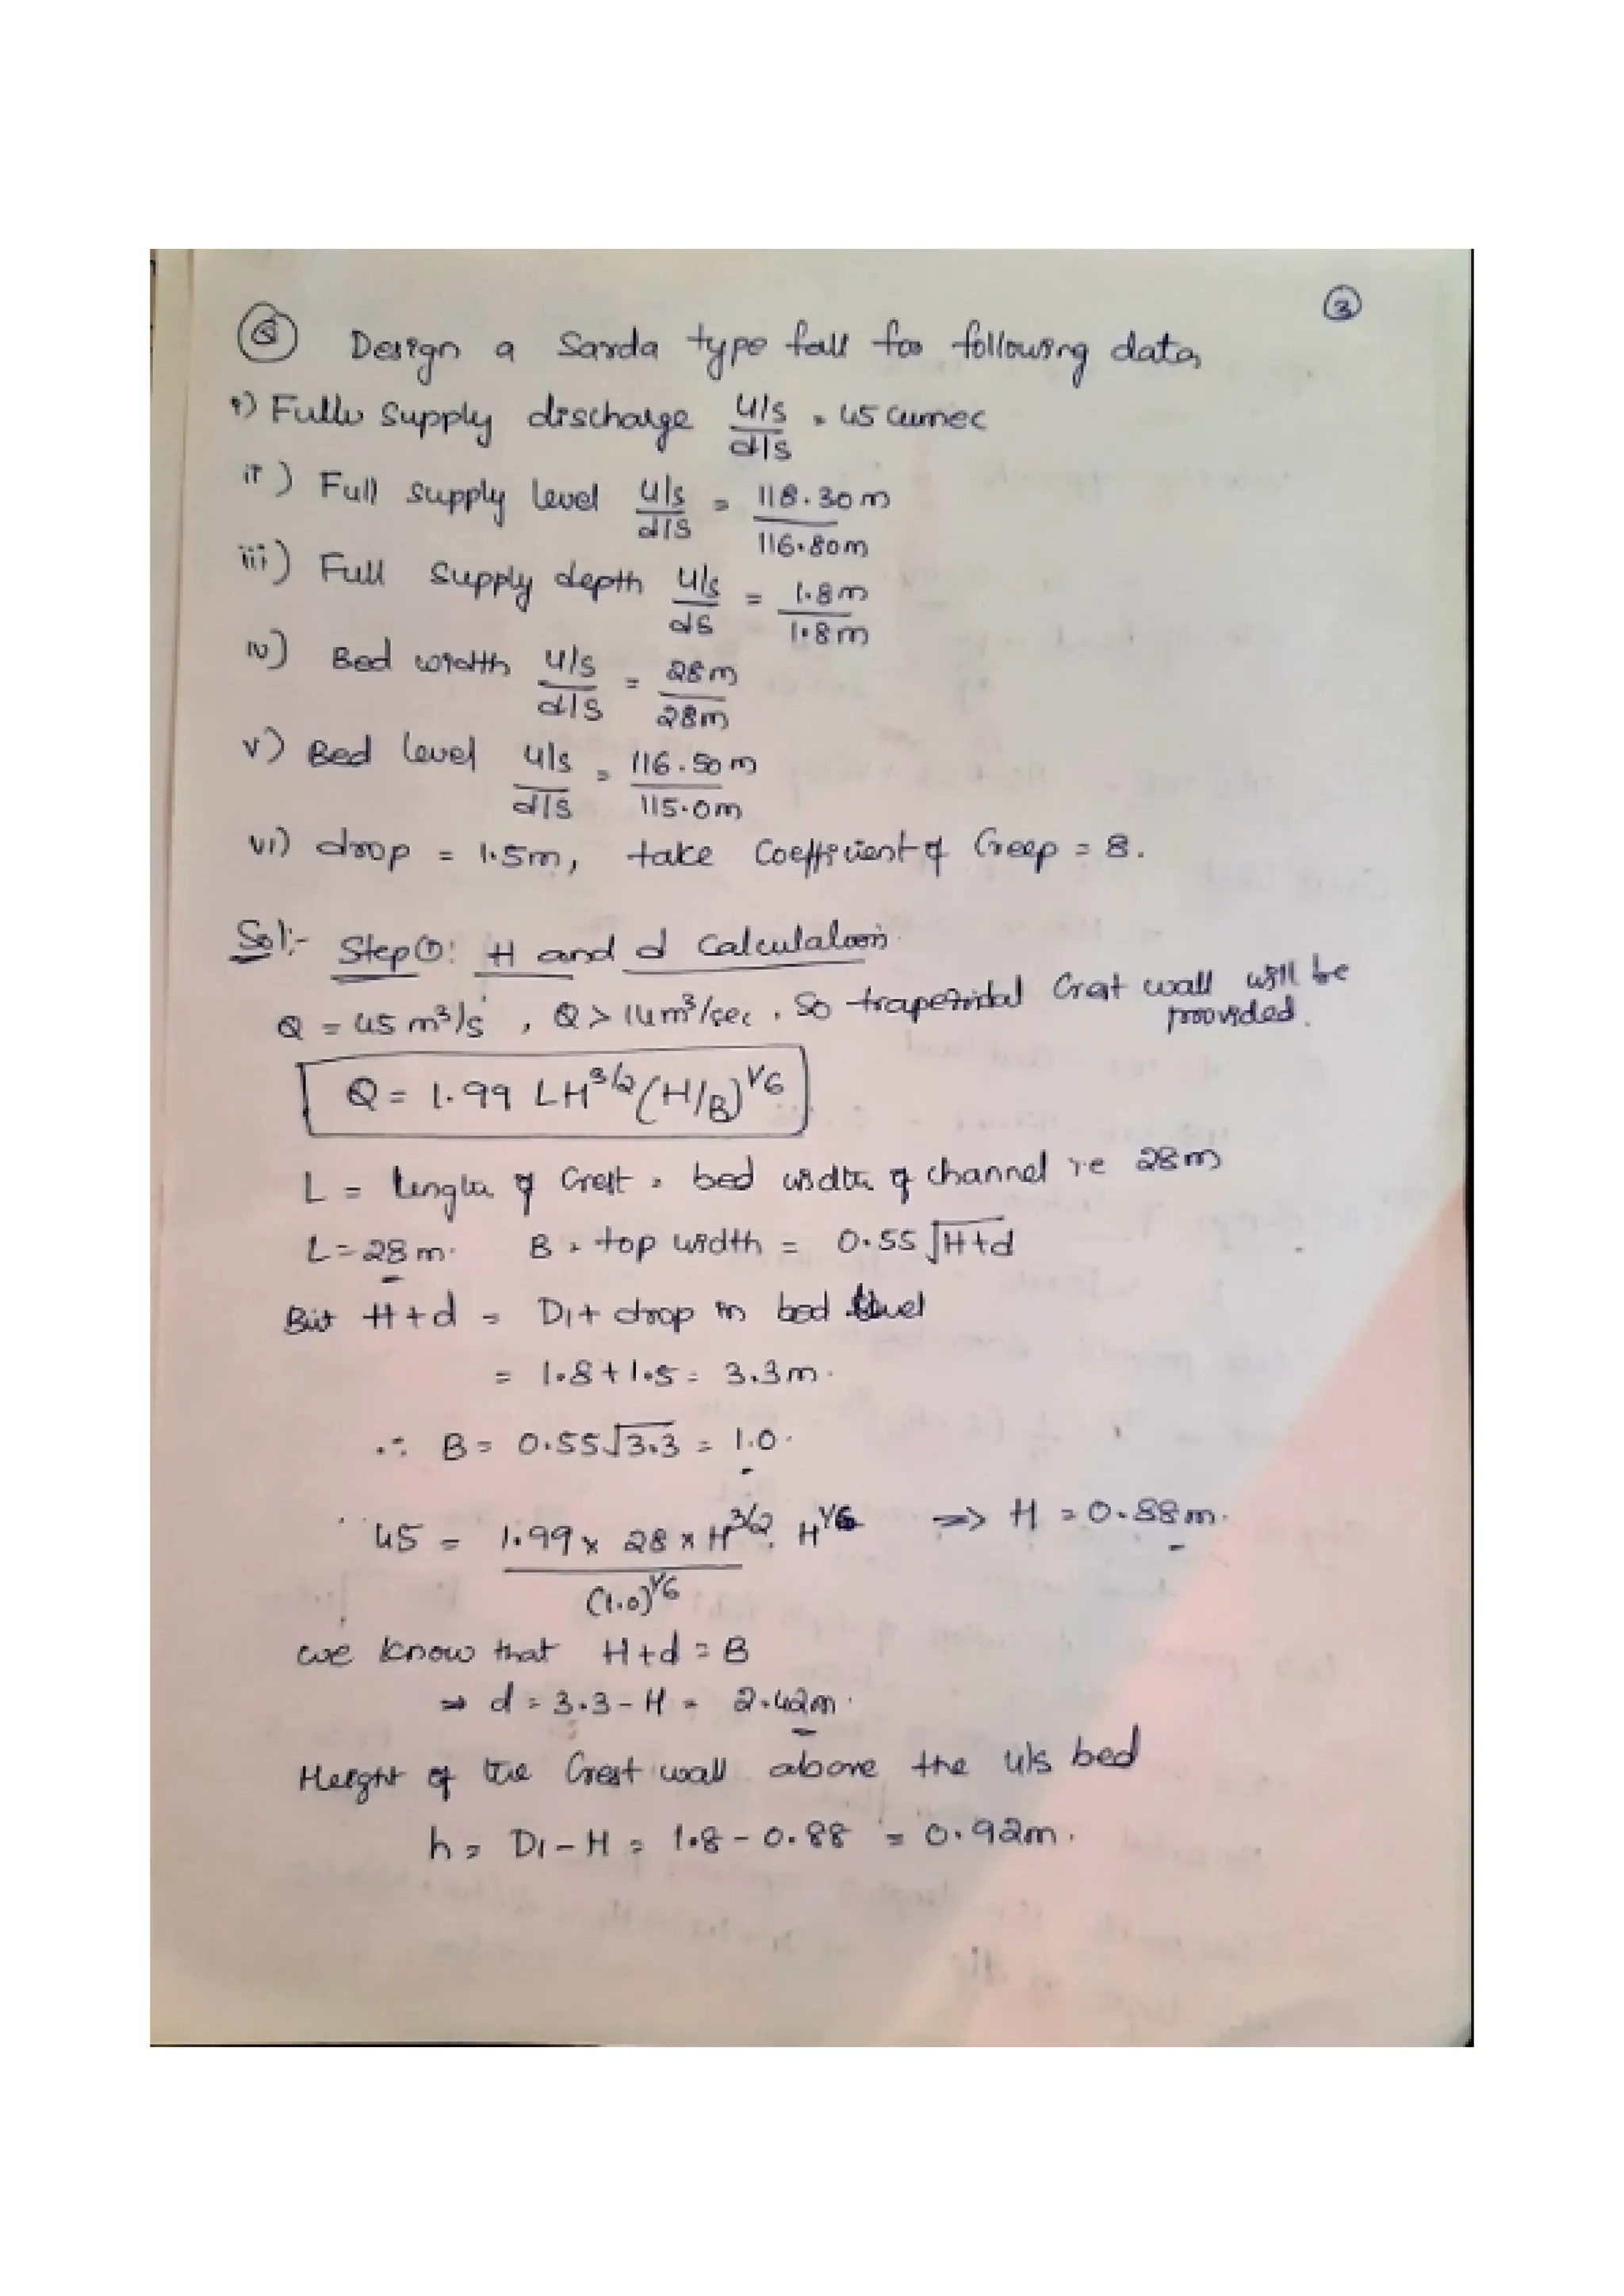 ③
Ⓠ Design a Sarda type fall for following data,
i) Full Supply discharge U/s/d/s = 45 cumec
ii) Full supply level U/s/d/s = 118.30m/116.80m
iii) Full supply depth U/s/ds = 1.8m/1.8m
iv) Bed width U/s/d/s = 28m/28m
v) Bed level U/s/d/s = 116.50m/115.0m
vi) drop = 1.5m, take Coefficient of Creep = 8.
Sol:- Step①: H and d Calculation
Q = 45 m³/s, Q > 14m³/sec, So trapezoidal Crest wall will be
provided.
Q = 1.99 LH^3/2 (H/B)^1/6
L = length of Crest = bed width of channel ie 28m
L = 28m. B = top width = 0.55 √H+d
But H+d = D1 + drop in bed level
= 1.8+1.5 = 3.3m.
∴ B = 0.55√3.3 = 1.0.
45 = 1.99 x 28 x H^3/2 . H^1/6 / (1.0)^1/6 => H = 0.88m.
we know that H+d = B
⇒ d = 3.3 - H = 2.42m.
Height of the Crest wall above the u/s bed
h = D1 - H = 1.8 - 0.88 = 0.92m.